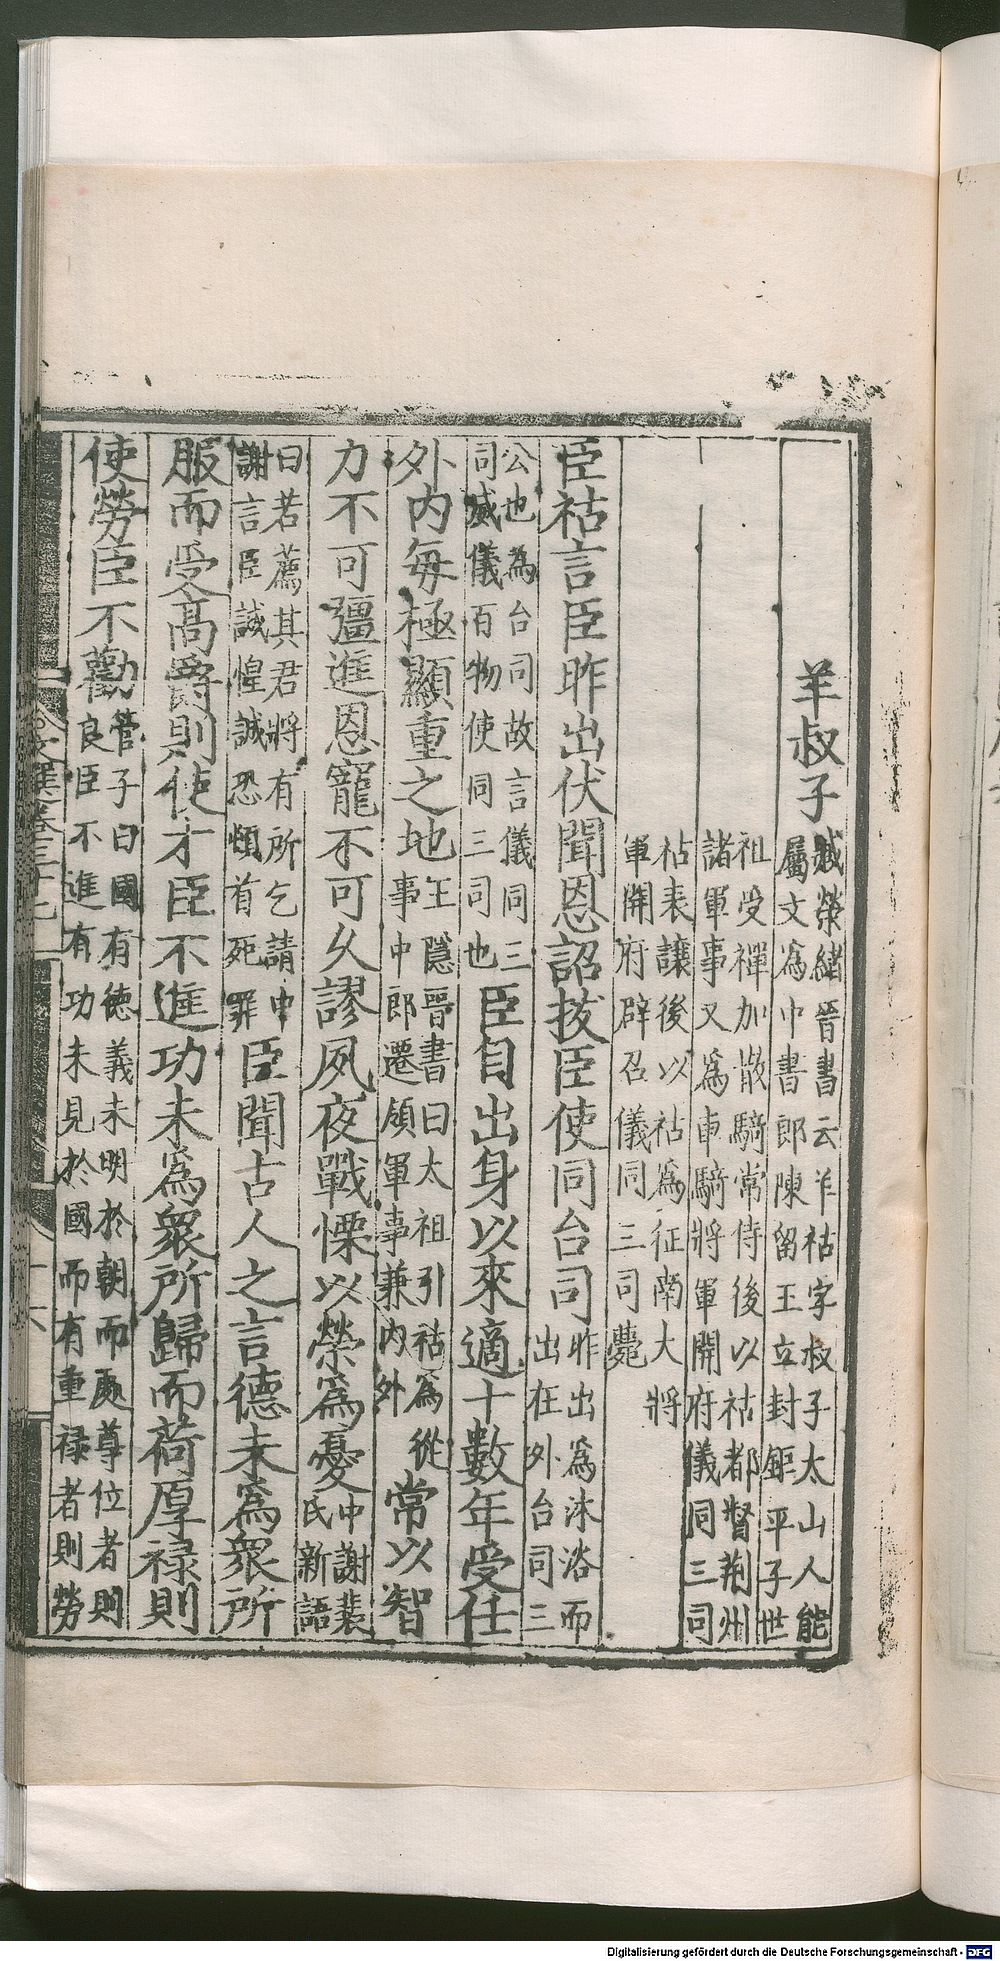 羊叔子臧榮緒晉書云羊祜字叔子太山人能
屬文爲中書郎陳留王立封鉅平子世
祖受禪加散騎常侍後以祜都督荊州
諸軍事又爲車騎將軍開府儀同三司
祜表讓後以祜爲征南大將
軍開府辟召儀同三司薨
臣祜言臣昨出伏聞恩詔拔臣使同台司昨出爲沐浴而
出在外台司三
公也為台司故言儀同三
司威儀百物使同三司也臣自出身以來適十數年受任
外內每極顯重之地王隱晉書曰太祖引祜爲從
事中郎遷領軍事兼內外常以智
力不可彊進恩寵不可久謬夙夜戰慄以榮爲憂中謝裴
氏新語
曰若薦其君將有所乞請中
謝言臣誠惶誠恐頓首死罪臣聞古人之言德未爲衆所
服而受高爵則使才臣不進功未爲衆所歸而荷厚祿則
使勞臣不勸管子曰國有德義未明於朝而處尊位者則
良臣不進有功未見於國而有重祿者則勞
文選卷三十七
十六
Digitalisierung gefördert durch die Deutsche Forschungsgemeinschaft - DFG